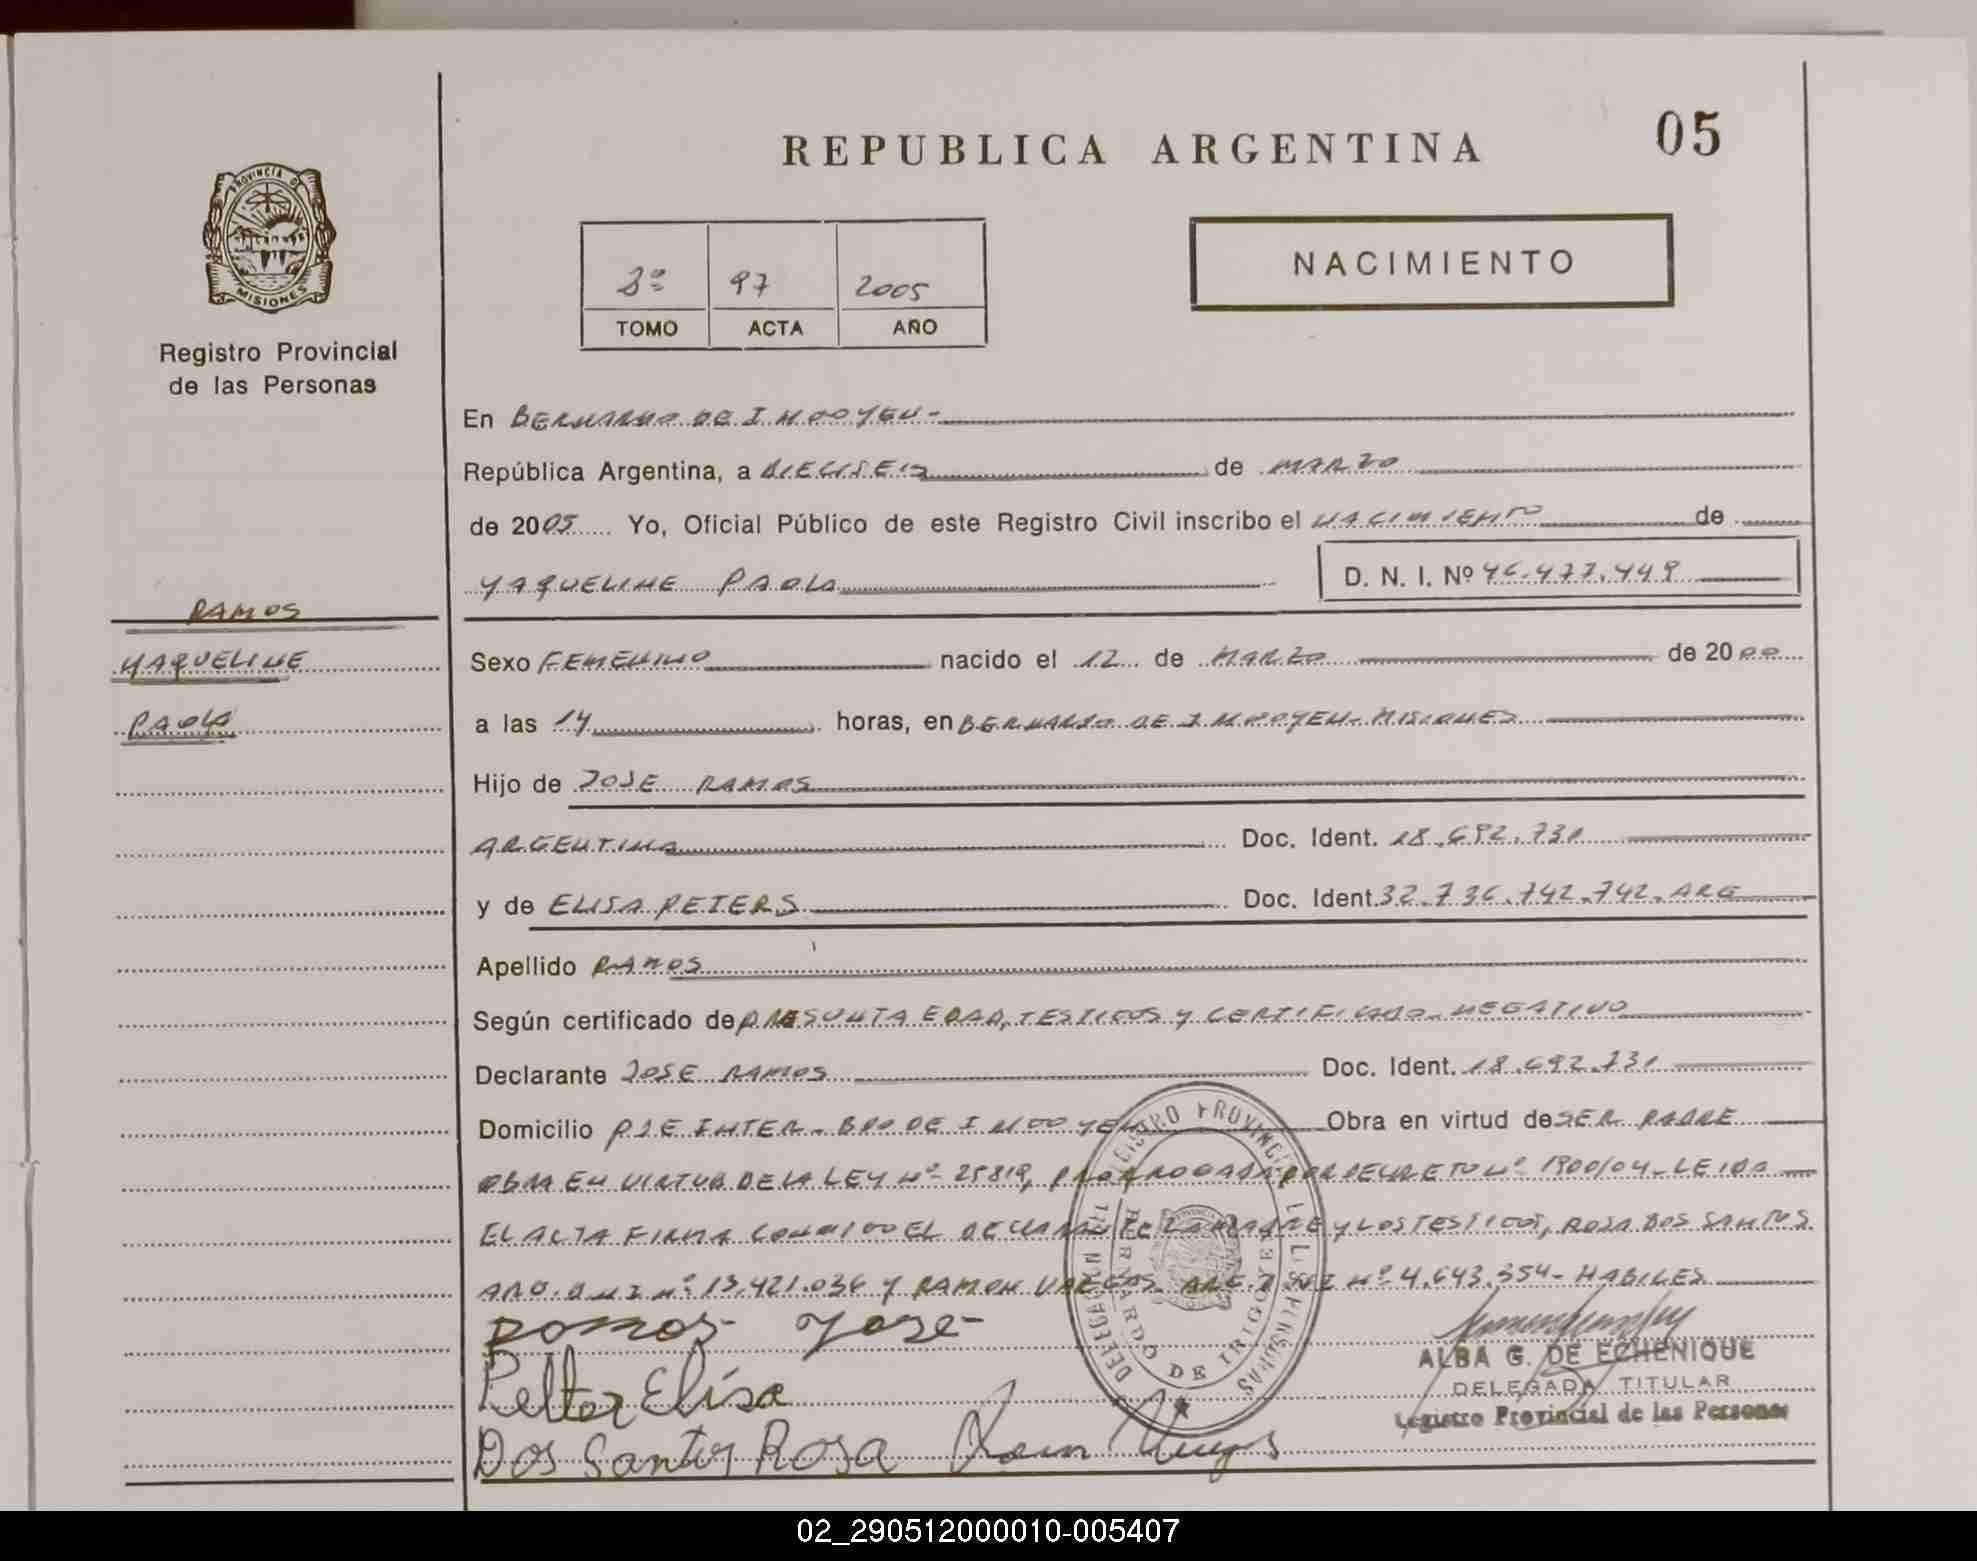 REPUBLICA ARGENTINA
05
PROVINCIA DE
MISIONES
Registro Provincial
de las Personas
97 2005
TOMO ACTA AÑO
NACIMIENTO
En BERNARDO DE IRIGOYEN-
República Argentina, a DIECISEIS de MARZO
de 2005 Yo, Oficial Público de este Registro Civil inscribo el NACIMIENTO de
YAQUELINE PAOLA
D. N. I. Nº 46.477.449
RAMOS
YAQUELINE
PAOLA
Sexo FEMENINO nacido el 12 de MARZO de 2000
a las 14 horas, en BERNARDO DE IRIGOYEN- MISIONES
Hijo de JOSE RAMOS
ARGENTINA Doc. Ident. 18.692.731
y de ELISA PETERS Doc. Ident. 32.736.742.742. ARG
Apellido RAMOS
Según certificado de PRESUNTA EDAD, TESTIGOS Y CERTIFICADO NEGATIVO
Declarante JOSE RAMOS Doc. Ident. 18.692.731
Domicilio PJE INTER- BDO DE IRIGOYEN Obra en virtud de SER PADRE
OBRA EN VIRTUD DE LA LEY Nº 25819, PRORROGADA POR DECRETO Nº 1900/04- LEIDA
EL ACTA FIRMA CONMIGO EL DECLARANTE LA MADRE Y LOS TESTIGOS, ROSA DOS SANTOS
ARG. DNI Nº 13.421.036 Y RAMON VARGAS. ARG. DNI Nº 4.643.354- HABILES
Ramos Jose
Pelter Elisa
Dos Santos Rosa
REGISTRO PROVINCIAL DE LAS PERSONAS
DELEGACION
BERNARDO DE IRIGOYEN
ALBA G. DE ECHENIQUE
DELEGADA TITULAR
Registro Provincial de las Personas
02_290512000010-005407